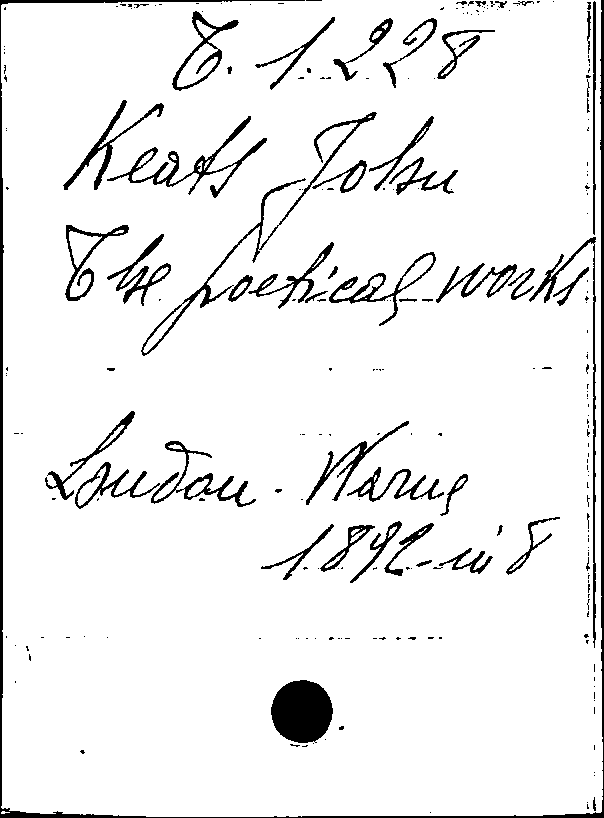 T. 1. 228
Keats, John
The poetical works
London - Warne
1892 - in 8